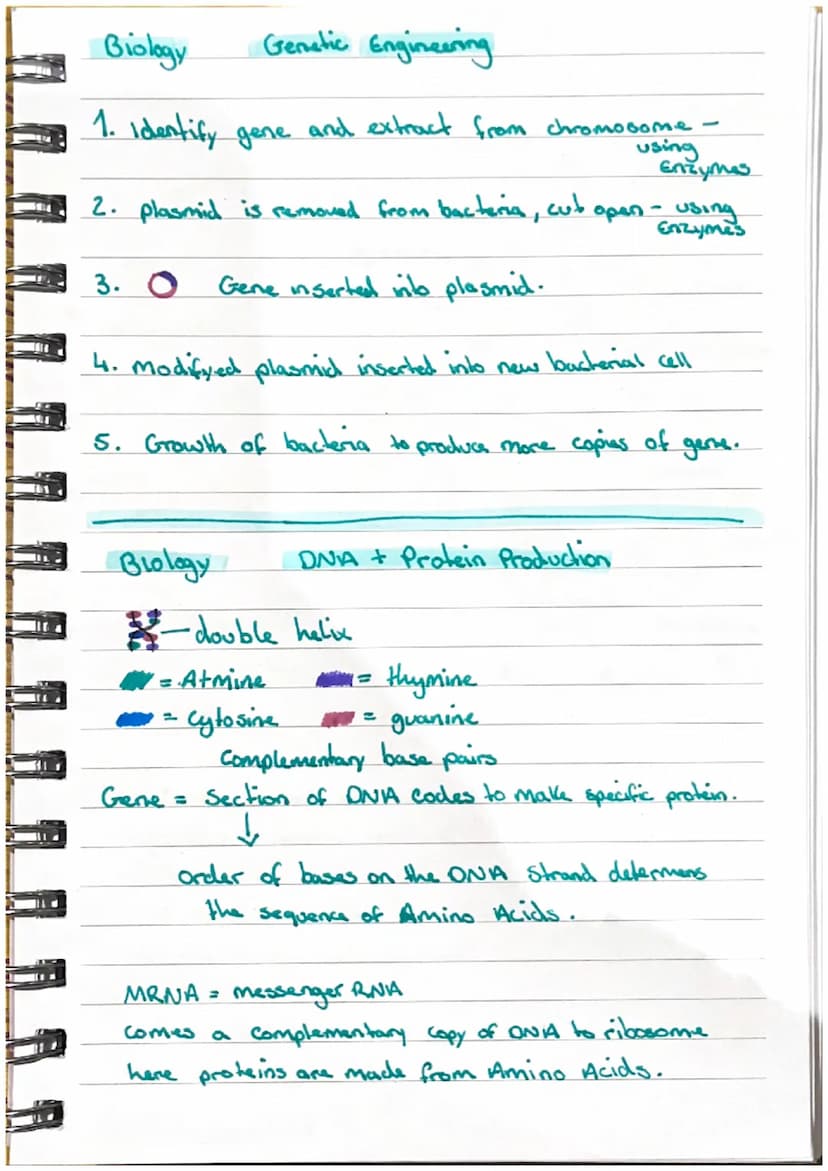 Biology Genetic Engineering
1. Identify gene and extract from chromosome - using Enzymes
2. plasmid is removed from bacteria, cut open - using Enzymes
3. Gene inserted into plasmid.
4. Modifyed plasmid inserted into new bacterial cell
5. Growth of bacteria to produce more copies of gene.
Biology DNA + Protein Production
- double helix
= Atmine = thymine
= Cytosine = guanine
Complementary base pairs
Gene = Section of DNA codes to make specific protein.
↓
order of bases on the DNA strand determens
the sequence of Amino Acids.
MRNA = messenger RNA
comes a complementary copy of DNA to ribosome
here proteins are made from Amino Acids.